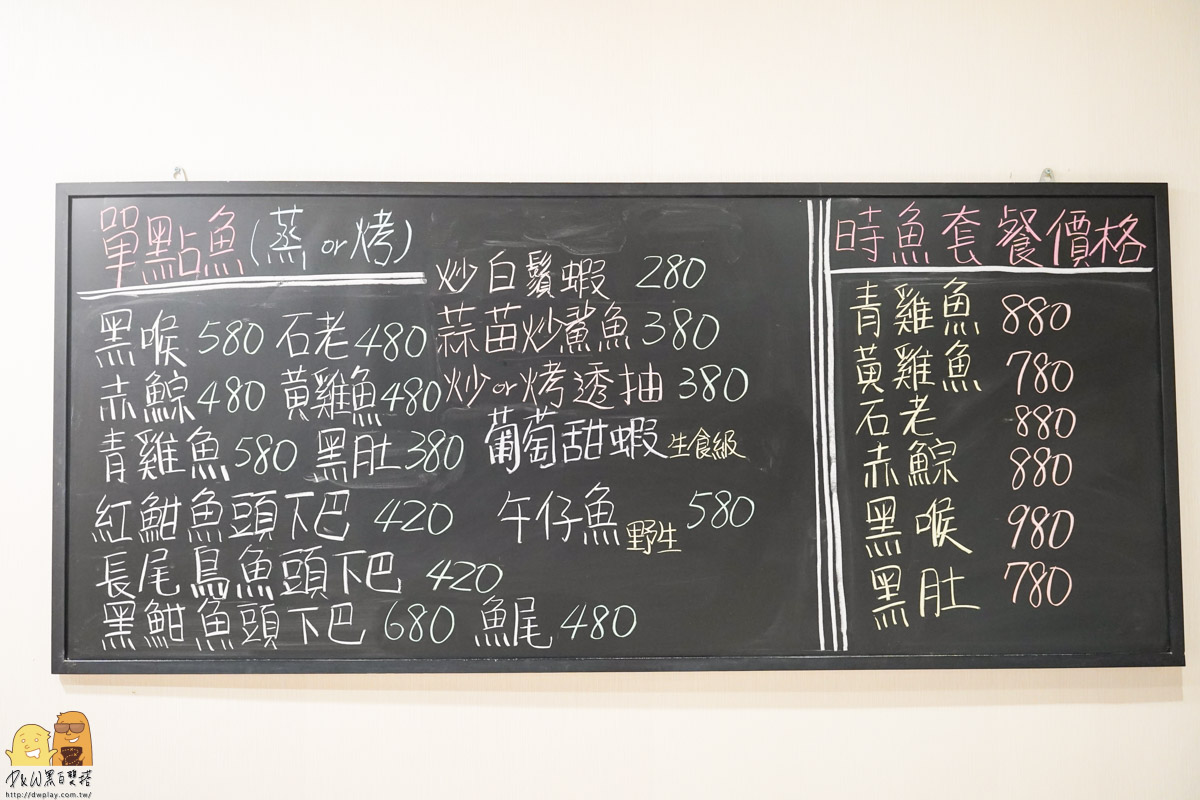 單點魚(蒸or烤)
炒白鬚蝦 280
黑喉 580 石老 480 蒜苗炒鯊魚 380
赤鯮 480 黃雞魚 480 炒or烤透抽 380
青雞魚 580 黑肚 380 葡萄甜蝦 生食級
紅魽魚頭下巴 420 午仔魚 野生 580
長尾鳥魚頭下巴 420
黑魽魚頭下巴 680 魚尾 480
時魚套餐價格
青雞魚 880
黃雞魚 780
石老 880
赤鯮 880
黑喉 980
黑肚 780
D&W黑白雙搭
http://dwplay.com.tw/